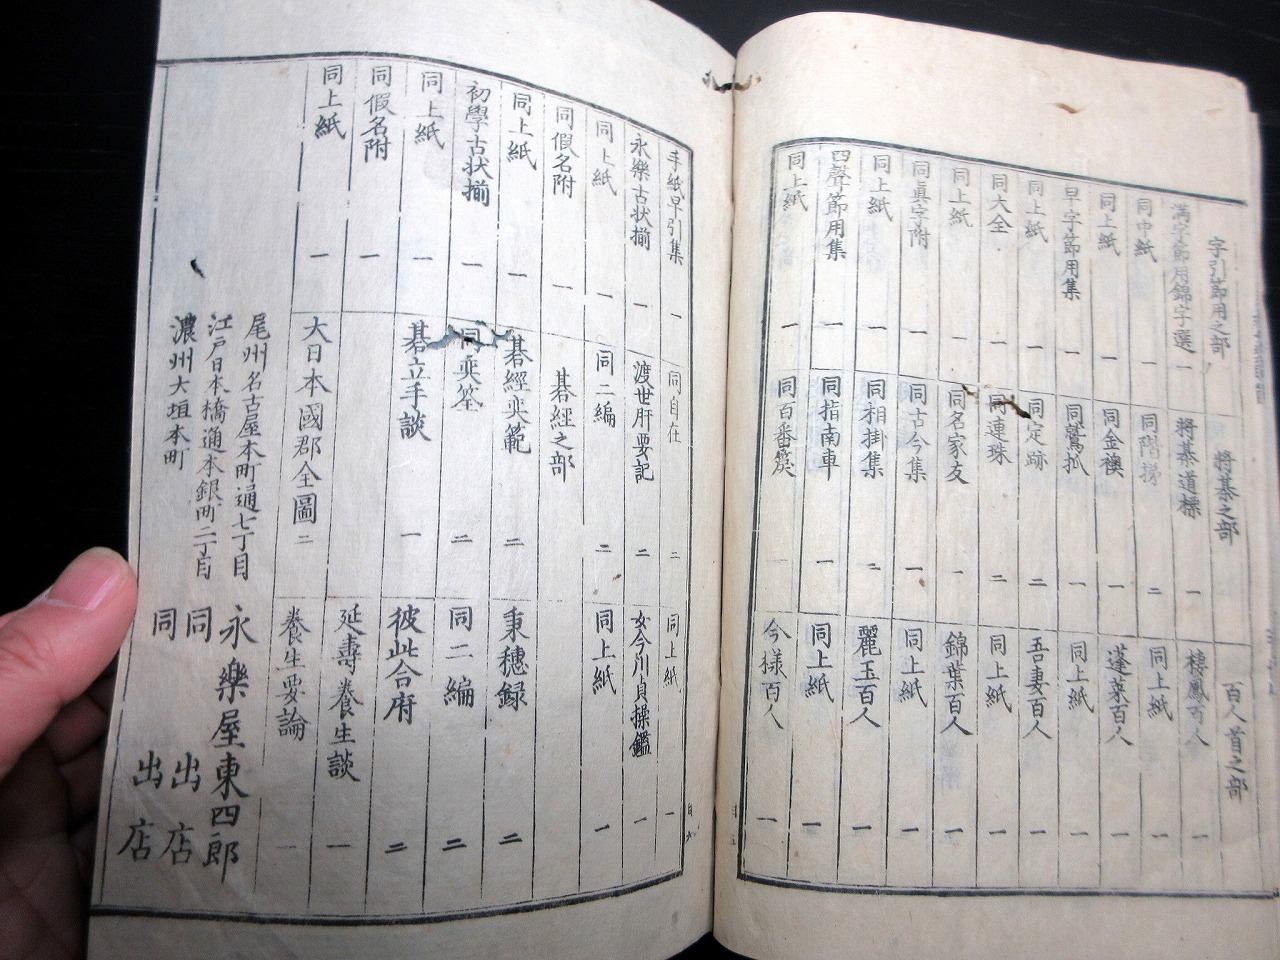 字引節用之部
満字節用錦字選 一
同中紙 一
同上紙 一
早字節用集 一
同上紙 一
同大全 一
同上紙 一
同眞字附 一
同上紙 一
四聲節用集 一
同上紙 一
將棊之部
將棊道標 一
同階梯 二
同金襖 一
同鷲抓 一
同定跡 二
同連珠 二
同名家友 一
同古今集 一
同相掛集 二
同指南車 一
同百番奕 一
百人首之部
棲鳳百人 一
同上紙 一
蓬莱百人 一
同上紙 一
吾妻百人 一
同上紙 一
錦葉百人 一
同上紙 一
麗玉百人 一
同上紙 一
今様百人 一
手紙早引集 一
永樂古状揃 一
同上紙 一
同假名附 一
同上紙 一
初學古状揃 一
同上紙 一
同假名附 一
同上紙 一
同自在 二
渡世肝要記 二
同二編 二
碁經之部
碁經奕範 二
同奕筌 二
碁立手談 一
大日本國郡全圖 二
同上紙 一
女今川貞操鑑 一
同上紙 一
秉穂録 二
同二編 二
彼此合府 二
延壽養生談 一
養生要論 一
尾州名古屋本町通七丁目 永樂屋東四郎
江戸日本橋通本銀町二丁目 同 出店
濃州大垣本町 同 出店